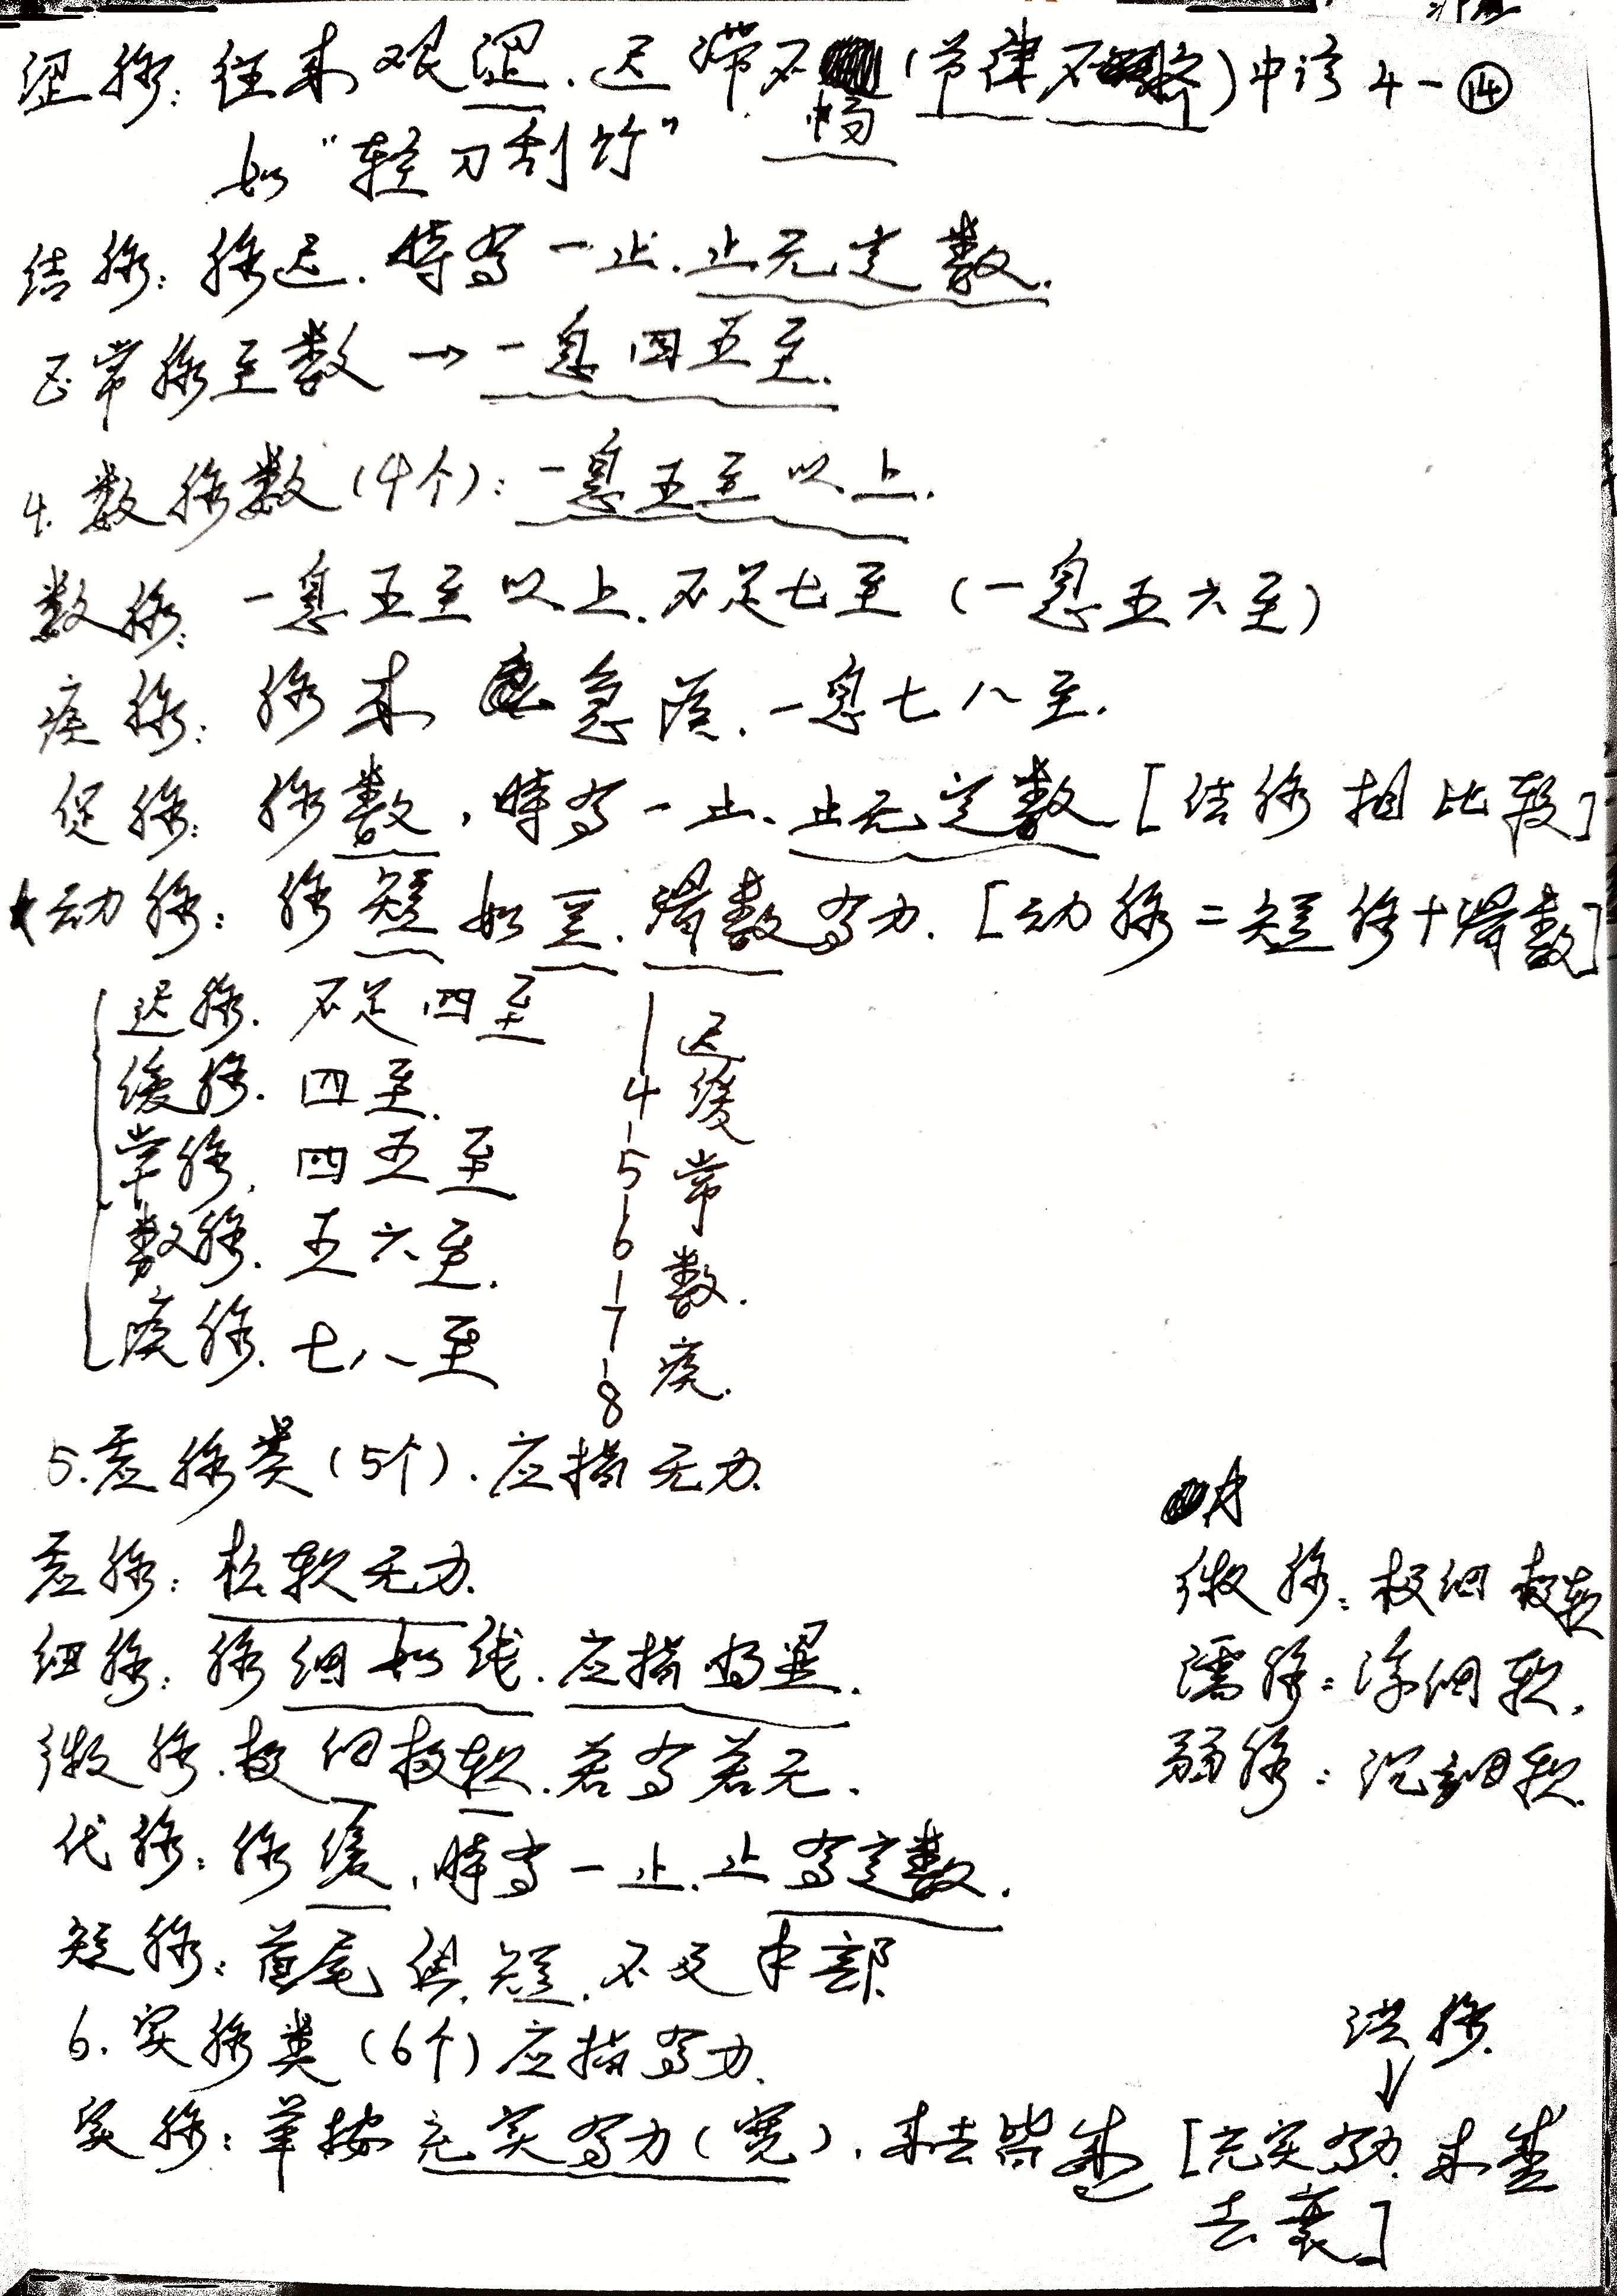 涩脉：往来艰涩．迟滞不畅（节律不齐）中诊4-⑭
如"轻刀刮竹"
结脉：脉迟．时有一止．止无定数．
正常脉至数→一息四五至．
4.数脉数（4个）：一息五至以上．
数脉：一息五至以上．不足七至（一息五六至）
疾脉：脉来急疾．一息七八至．
促脉：脉数，时有一止、止无定数[结脉相比较]
动脉：脉短如豆．滑数有力．[动脉=短脉+滑数]
迟脉．不足四至
缓脉．四至．
常脉．四五至
数脉．五六至．
疾脉．七八至
4
5
6
7
8
迟
缓
常
数．
疾．
5.虚脉类（5个）．应指无力．
虚脉：松软无力．
细脉：脉细如线．应指明显．
微脉．极细极软．若有若无．
代脉：脉缓，时有一止．止有定数．
短脉：首尾俱短．不及本部
微脉：极细极软
濡脉：浮细软．
弱脉：沉细软．
6.实脉类（6个）应指有力．
洪脉．
↓
实脉：举按充实有力（宽）．来去皆盛[充实有力．来盛
去衰]